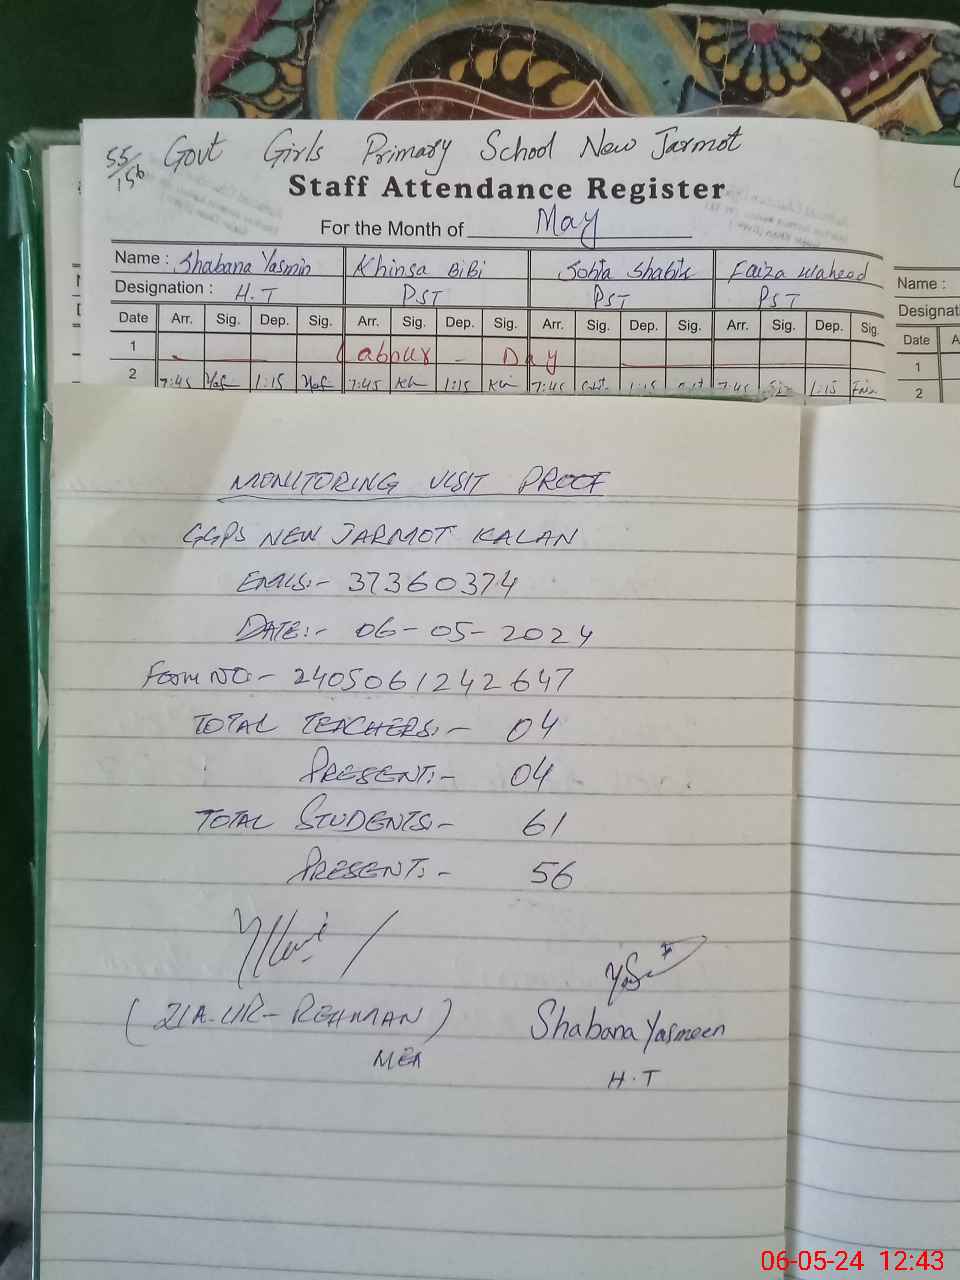 55/156 Govt Girls Primary School New Jarmot
Staff Attendance Register
For the Month of May
Name : Shabana Yasmin Khinsa BiBi Sobia Shabik Faiza Waheed
Designation : H.T PST PST PST
Date Arr. Sig. Dep. Sig. Arr. Sig. Dep. Sig. Arr. Sig. Dep. Sig. Arr. Sig. Dep. Sig.
1 Labour Day
2 7:45 1:15 7:45 1:15 7:45 1:15 7:45 1:15
Name :
Designati
Date A
1
2
MONITORING VISIT PROOF
GGPS NEW JARMOT KALAN
EMIS:- 37360374
DATE:- 06-05-2024
Form NO:- 2405061242647
TOTAL TEACHERS:- 04
PRESENT:- 04
TOTAL STUDENTS:- 61
PRESENT:- 56
(ZIA-UR-REHMAN)
MEA
Shabana Yasmeen
H.T
06-05-24 12:43